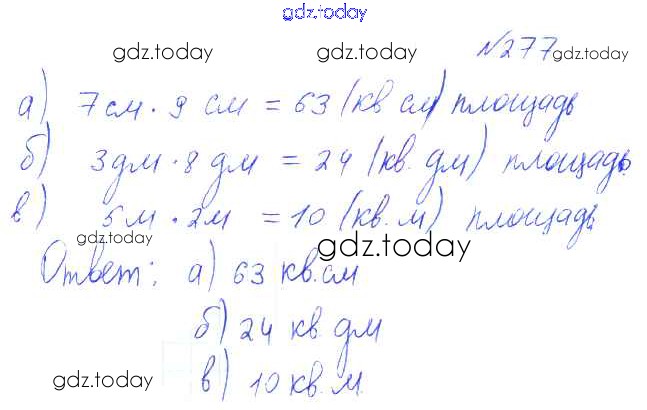 gdz.today
gdz.today gdz.today №277 gdz.today
а) 7см · 9 см = 63 (кв см) площадь
б) 3дм · 8 дм = 24 (кв. дм) площадь
в) 5м · 2м = 10 (кв. м) площадь
gdz.today gdz.today
Ответ: а) 63 кв.см
б) 24 кв дм
gdz.today в) 10 кв. м.